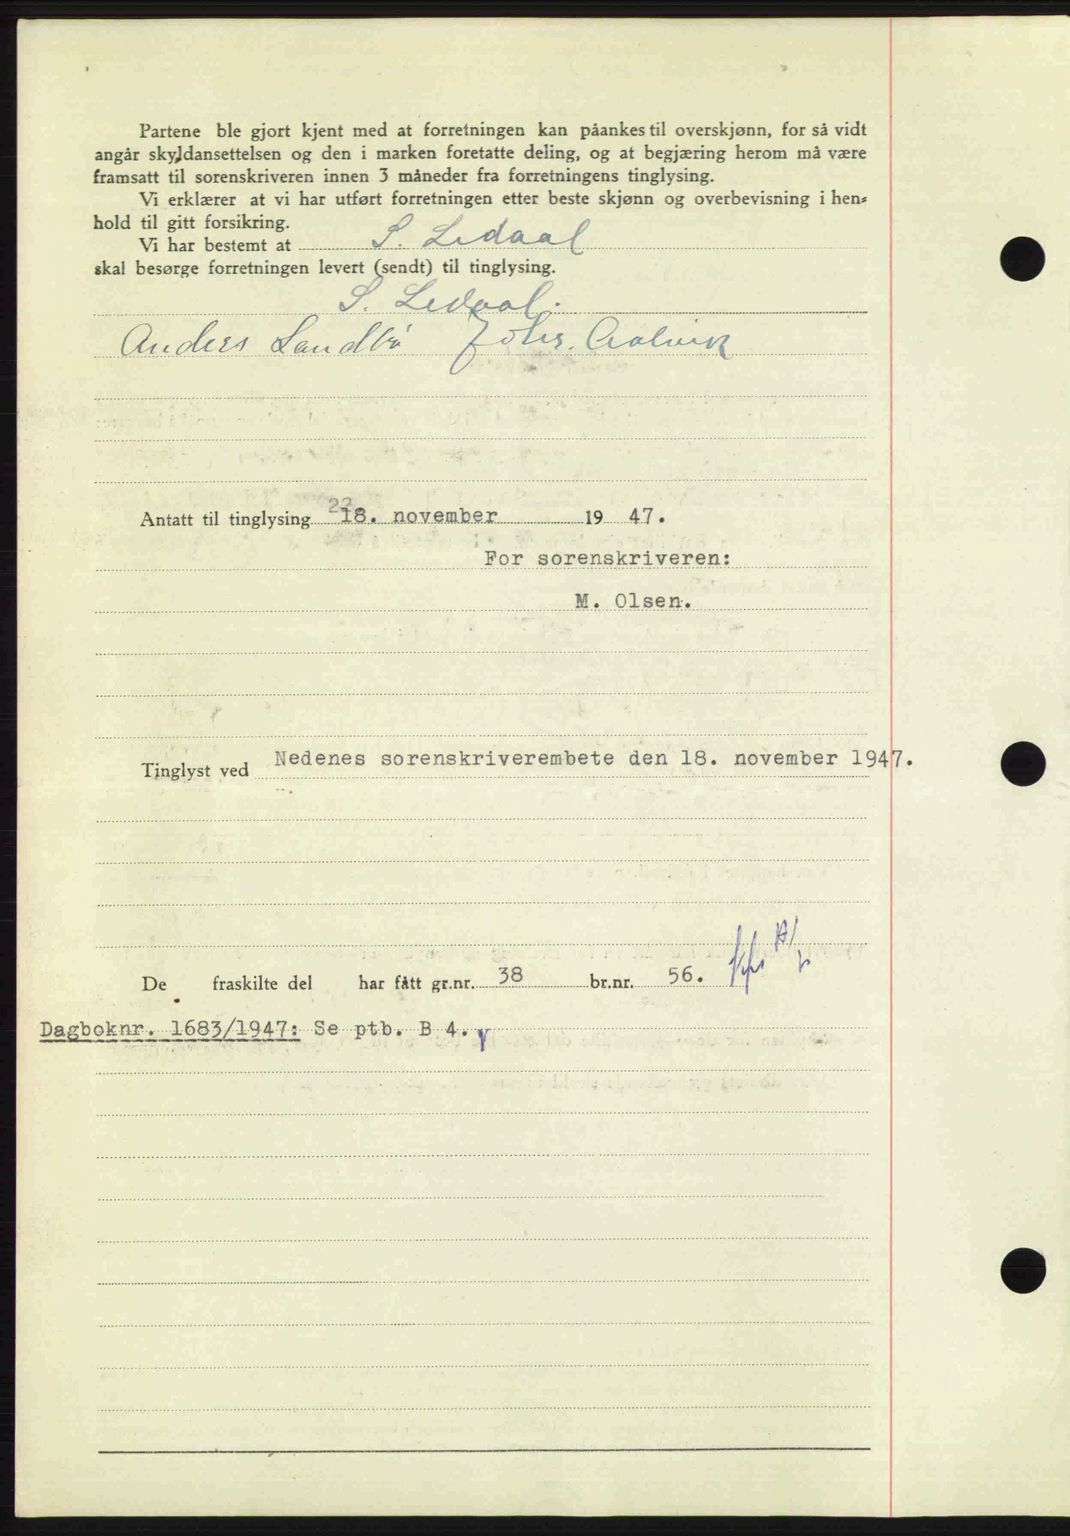 Partene ble gjort kjent med at forretningen kan påankes til overskjønn, for så vidt
angår skyldansettelsen og den i marken foretatte deling, og at begjæring herom må være
framsatt til sorenskriveren innen 3 måneder fra forretningens tinglysing.
Vi erklærer at vi har utført forretningen etter beste skjønn og overbevisning i hen=
hold til gitt forsikring.
Vi har bestemt at S. Ledaal
skal besørge forretningen levert (sendt) til tinglysing.
S. Ledaal.
Anders Landbø Johs. Aalvik
Antatt til tinglysing 18. november 19 47.
For sorenskriveren:
M. Olsen.
Tinglyst ved Nedenes sorenskriverembete den 18. november 1947.
De fraskilte del har fått gr.nr. 38 br.nr. 56.
Dagboknr. 1683/1947: Se ptb. B 4.